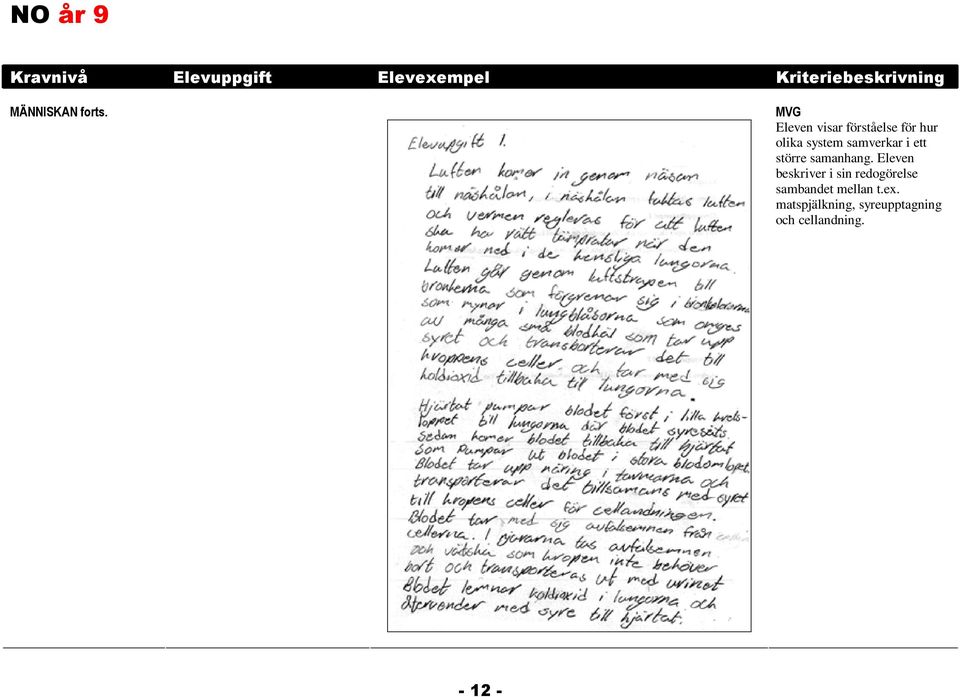 NO år 9
Kravnivå Elevuppgift Elevexempel Kriteriebeskrivning
MÄNNISKAN forts.
MVG
Eleven visar förståelse för hur
olika system samverkar i ett
större samanhang. Eleven
beskriver i sin redogörelse
sambandet mellan t.ex.
matspjälkning, syreupptagning
och cellandning.
Elevupgift 1.
Luften komer in genom näsan
till näshålan, i näshålan fuktas luften
och vermen regleras för att luften
ska ha rätt tämpratur när den
komer ned i de kensliga lungorna.
Luften går genom luftstrupen till
bronkerna som förgrenar sig i
som mynar i lungblåsorna som omges
av många små blodkäl som tar upp
syret och transborterar det till
kroppens celler och tar med sig
koldioxid tillbaka till lungorna.
Hjärtat pumpar blodet först i lilla krets-
loppet till lungorna där blodet syresäts.
Sedan komer blodet tillbaka till hjärtat
som pumpar ut blodet i stora blodomlopet.
Blodet tar upp näring i tarmarna och
transporterar det tillsamans med syret
till kropens celler för cellandningen.
Blodet tar med sig avfalsemnen från
cellerna. I njurarna tas avfalsemnen
och vätska som kropen inte behöver
bort och transporteras ut med urinet
Blodet lemnar koldioxid i lungorna och
återvender med syre till hjärtat.
- 12 -